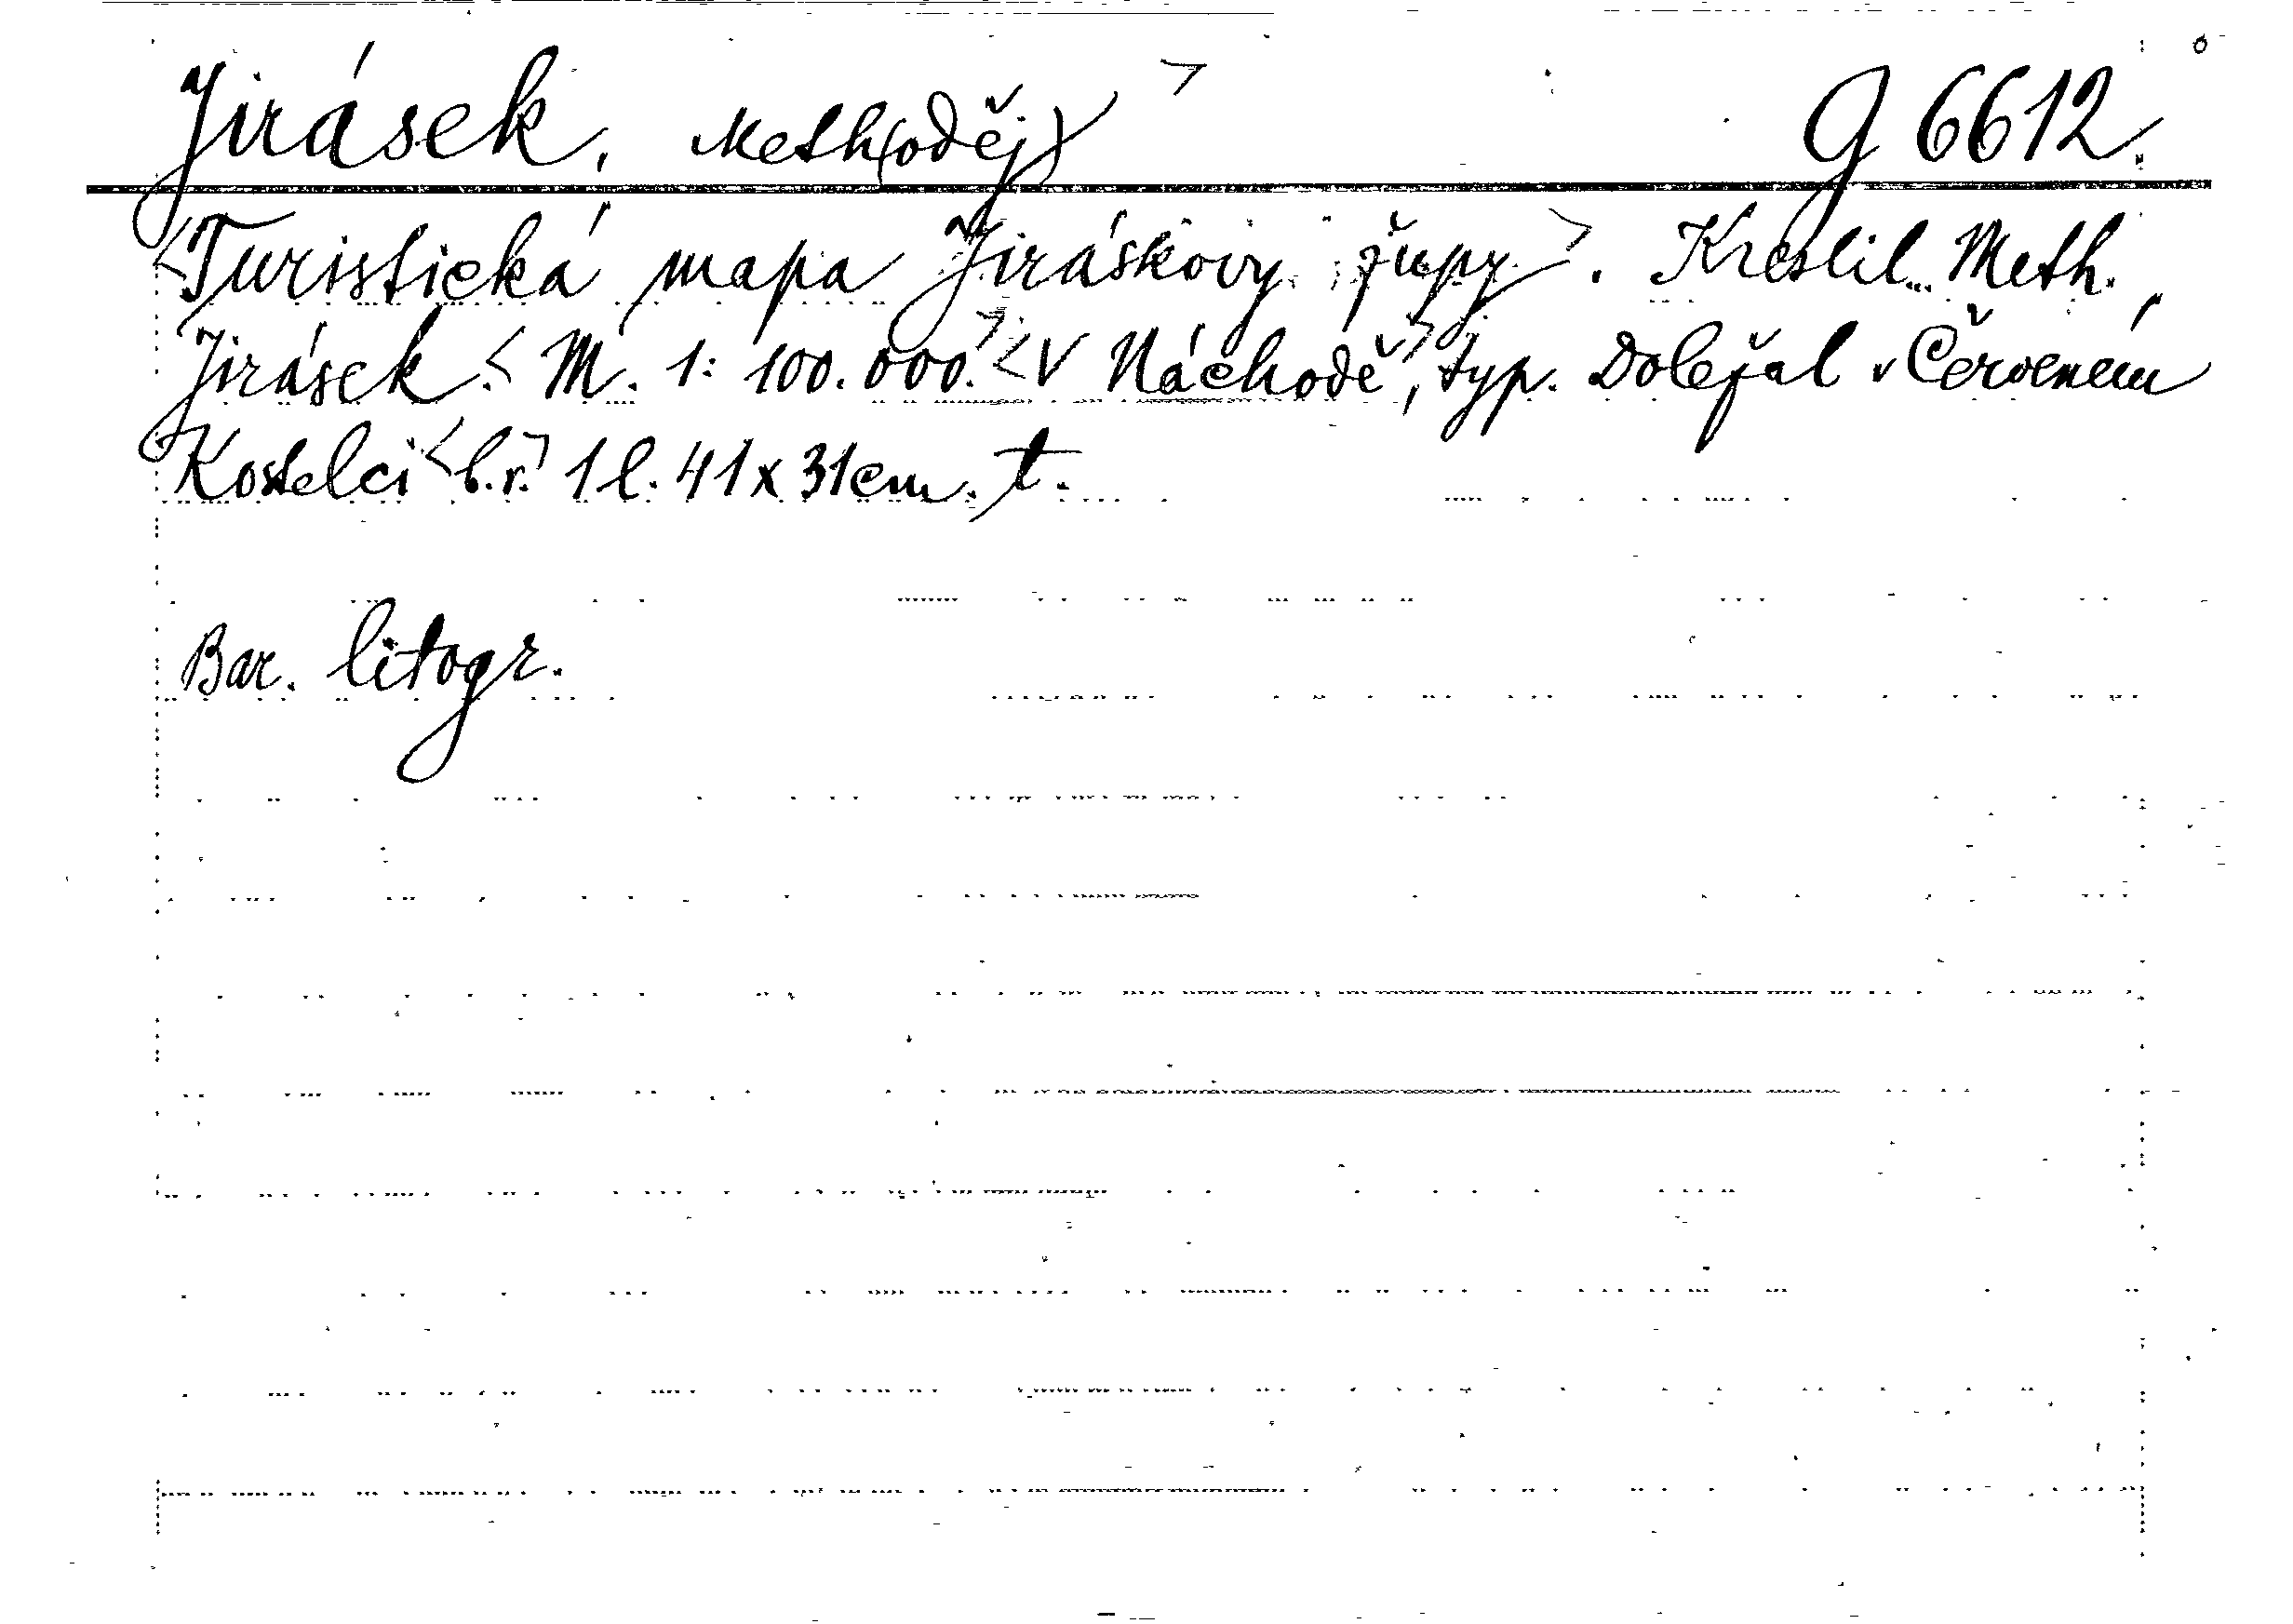 Jirásek, Meth(oděj) > G 6612.
<Turistická mapa Jiráskovy župy>. Kreslil Meth.
Jirásek.< M. 1: 100.000.><V Náchodě>, typ. Doležal v Červeném
Kostelci <b.r.> 1 l. 41 x 31 cm. t.
Bar. litogr.